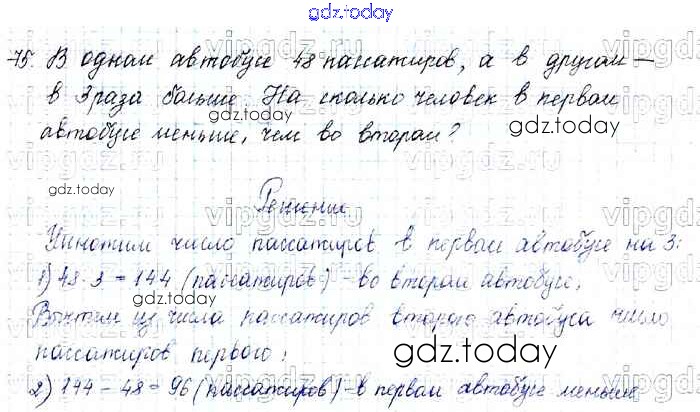 gdz.today
75. В одном автобусе 48 пассажиров, а в другом —
в 3 раза больше. На сколько человек в первом
автобусе меньше, чем во втором?
gdz.today
gdz.today
Решение
Умножим число пассажиров в первом автобусе на 3:
1) 48 · 3 = 144 (пассажиров) - во втором автобусе,
gdz.today
Вычтем из числа пассажиров второго автобуса число
пассажиров первого:
gdz.today
2) 144 - 48 = 96 (пассажиров) - в первом автобусе меньше